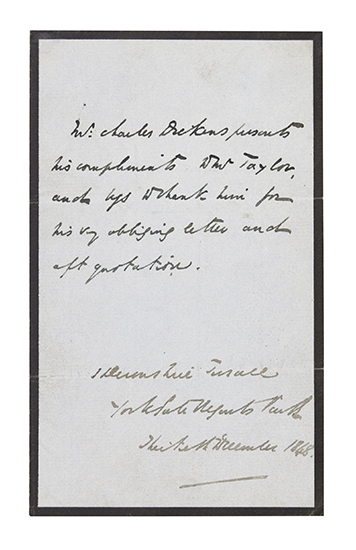 Mr. Charles Dickens presents
his compliments to Mr Taylor,
and begs to thank him for
his very obliging letter and
apt quotation.
1 Devonshire Terrace
York Gate Regents Park
December 1848.